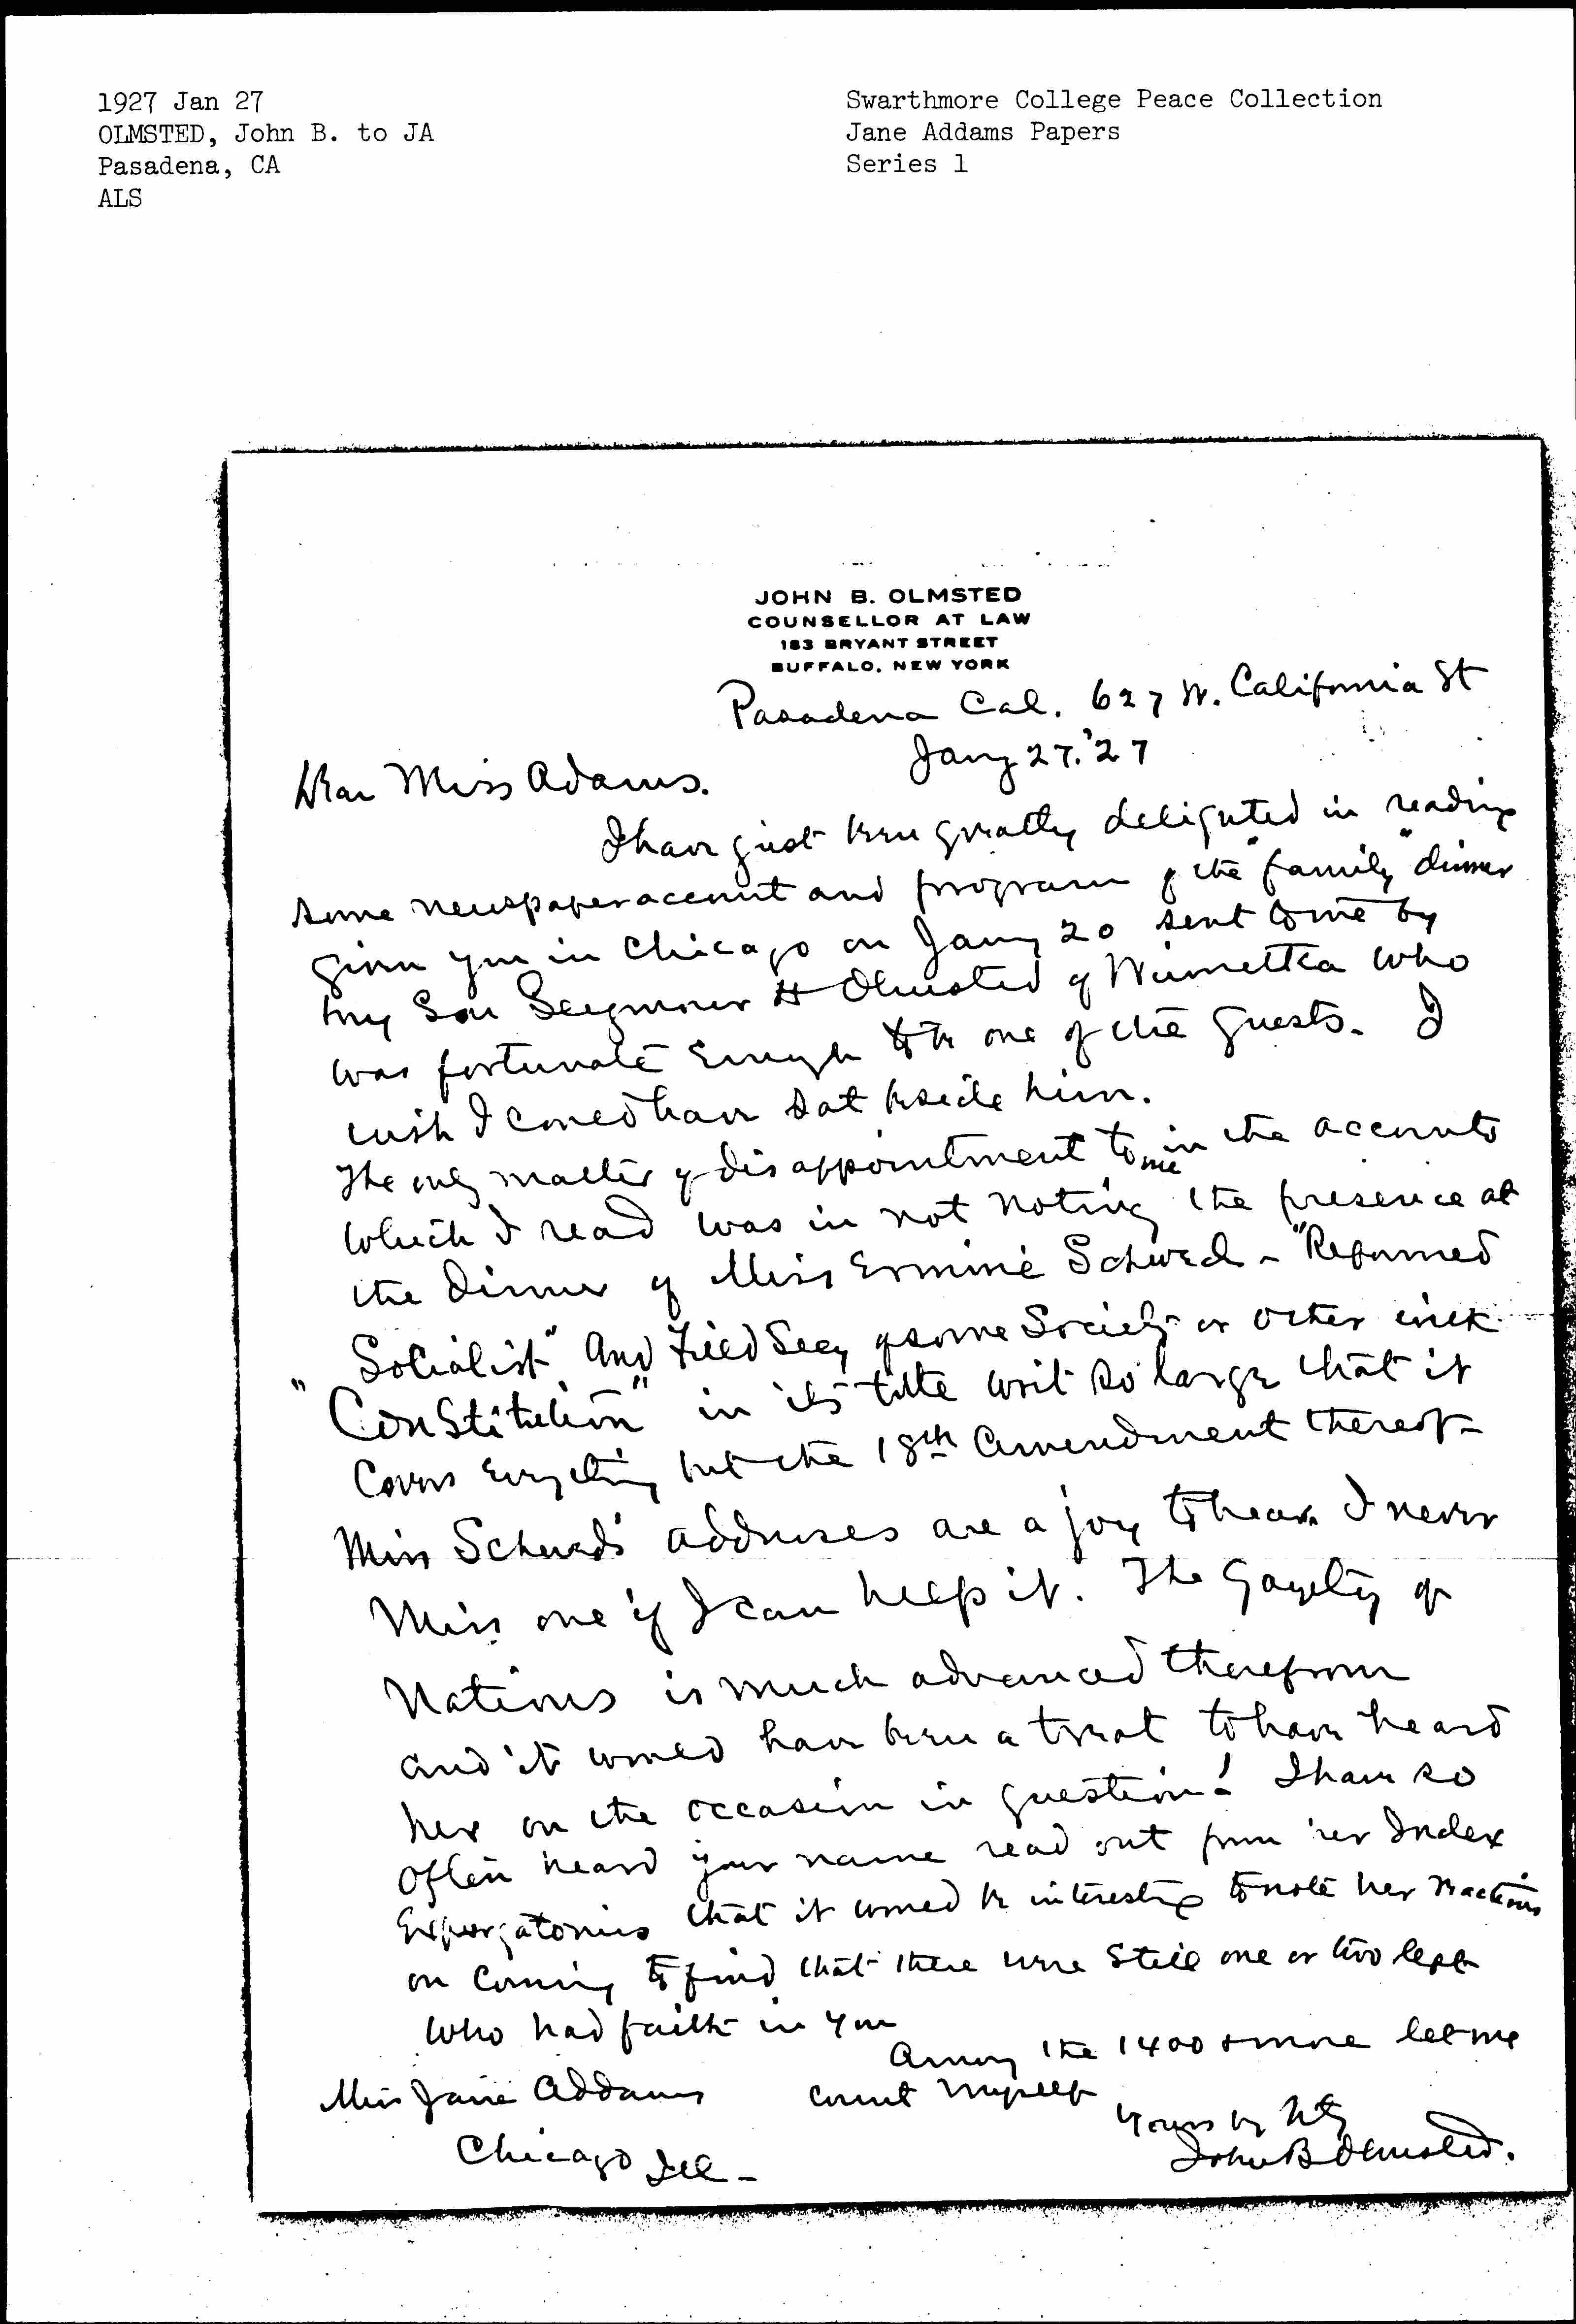 1927 Jan 27
OLMSTED, John B. to JA
Pasadena, CA
ALS
Swarthmore College Peace Collection
Jane Addams Papers
Series 1
JOHN B. OLMSTED
COUNSELLOR AT LAW
183 BRYANT STREET
BUFFALO, NEW YORK
Pasadena Cal. 627 W. California St
Jany 27. '27
Dear Miss Adams.
I have just been greatly delighted in reading
some newspaper account and program of the "family" dinner
given you in Chicago on Jany 20 sent to me by
my Son Seymour H Olmsted of Winnetka who
was fortunate enough to be one of the guests. I
wish I could have sat beside him.
The only matter of disappointment to me in the accounts
which I read was in not noting the presence at
the dinner of Miss Ermine Schwed - "Reformed
Socialist" and Field Secy of some Society or other with
"Constitution" in its title writ so large that it
covers everything but the 18th Amendment thereof -
Miss Schwed's addresses are a joy to hear. I never
miss one if I can help it. The Gayety of
Nations is much advanced therefrom
and it would have been a treat to have heard
her on the occasion in question! I have so
often heard your name read out from her Index
Expurgatorius that it would be interesting to note her reactions
on coming to find that there were still one or two left
who had faith in you
Among the 1400 & more let me
count myself
Miss Jane Addams
Chicago Ill -
Yours
John B Olmsted.